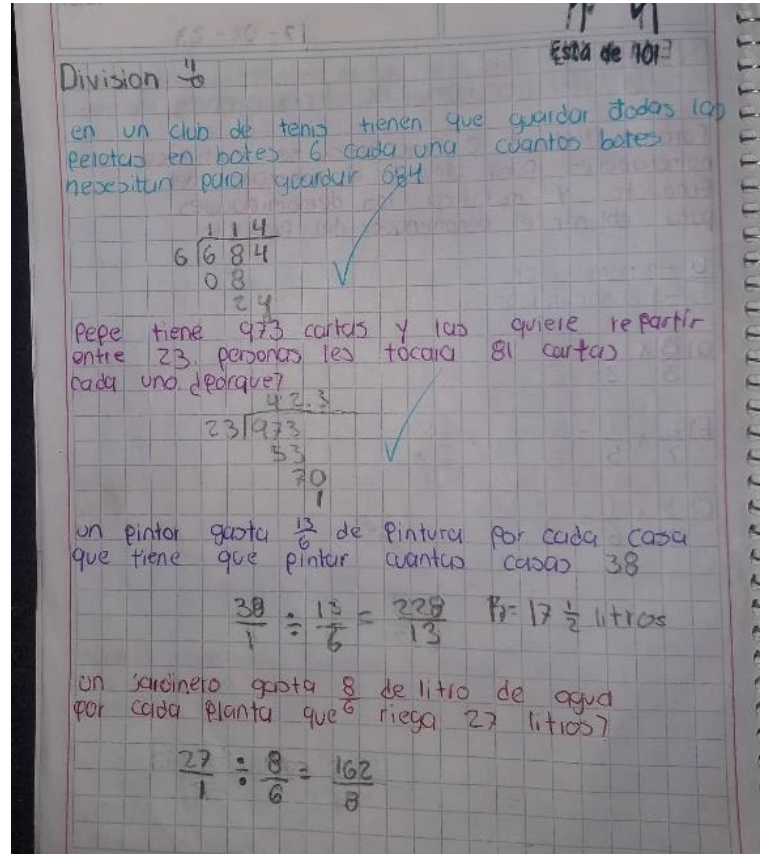 Está de 10!
Division
en un club de tenis tienen que guardar todas las
pelotas en botes 6 cada una cuantos botes
nesesitan para guardar 684
114
6 684
08
24
Pepe tiene 973 cartas y las quiere repartir
entre 23 personas les tocara 81 cartas
cada uno ¿porque?
42.3
23 973
53
70
1
un pintor gasta 13/6 de pintura por cada casa
que tiene que pintar cuantas casas 38
38/1 ÷ 13/6 = 228/13 R= 17 1/2 litros
un jardinero gasta 8/6 de litro de agua
por cada planta que riega 27 litros?
27/1 ÷ 8/6 = 162/8